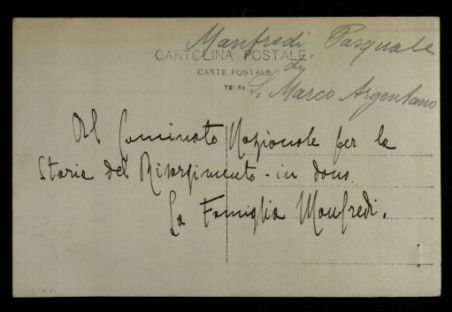 Manfredi Pasquale
CARTOLINA POSTALE
di
CARTE POSTALE
S. Marco Argentano
Al Comitato Nazionale per la
Storia del Risorgimento - in dono.
La Famiglia Manfredi.